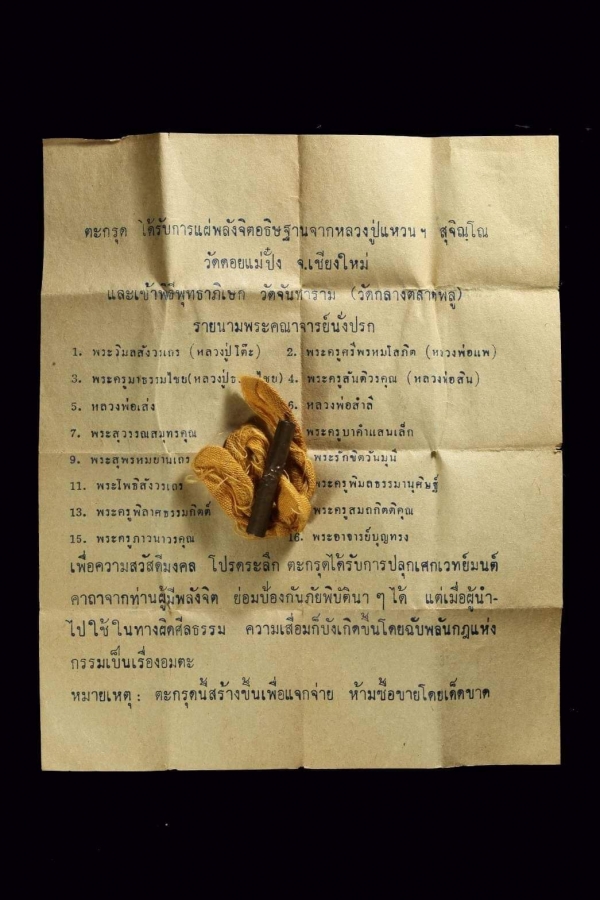 ตะกรุด ได้รับการแผ่พลังจิตอธิษฐานจากหลวงปู่แหวน ฯ สุจิณฺโณ
วัดดอยแม่ปั๋ง จ.เชียงใหม่
และเข้าพิธีพุทธาภิเษก วัดจันทาราม (วัดกลางตลาดพลู)
รายนามพระคณาจารย์นั่งปรก
1. พระวิมลสังวรเถร (หลวงปู่โต๊ะ) 2. พระครูศรีพรหมโสภิต (หลวงพ่อแพ)
3. พระครูมหาธรรมไชย (หลวงปู่ธ ไชย) 4. พระครูสันติวรคุณ (หลวงพ่อสิน)
5. หลวงพ่อเส่ง 6. หลวงพ่อสำลี
7. พระสุวรรณสมุทรคุณ พระครูบาคำแสนเล็ก
9. พระสุพรหมยานเถร พระรักขิตวันมุนี
11. พระโพธิสังวรเถร พระครูพิมลธรรมานุศิษฎ์
13. พระครูพิลาศธรรมกิตติ์ พระครูสมถกิตติคุณ
15. พระครูภาวนาวรคุณ 16. พระอาจารย์บุญทรง
เพื่อความสวัสดีมงคล โปรดระลึก ตะกรุดได้รับการปลุกเศกเวทย์มนต์
คาถาจากท่านผู้มีพลังจิต ย่อมป้องกันภัยพิบัตินา ๆ ได้ แต่เมื่อผู้นำ-
ไปใช้ในทางผิดศีลธรรม ความเสื่อมก็บังเกิดขึ้นโดยฉับพลันกฎแห่ง
กรรมเป็นเรื่องอมตะ
หมายเหตุ : ตะกรุดนี้สร้างขึ้นเพื่อแจกจ่าย ห้ามซื้อขายโดยเด็ดขาด